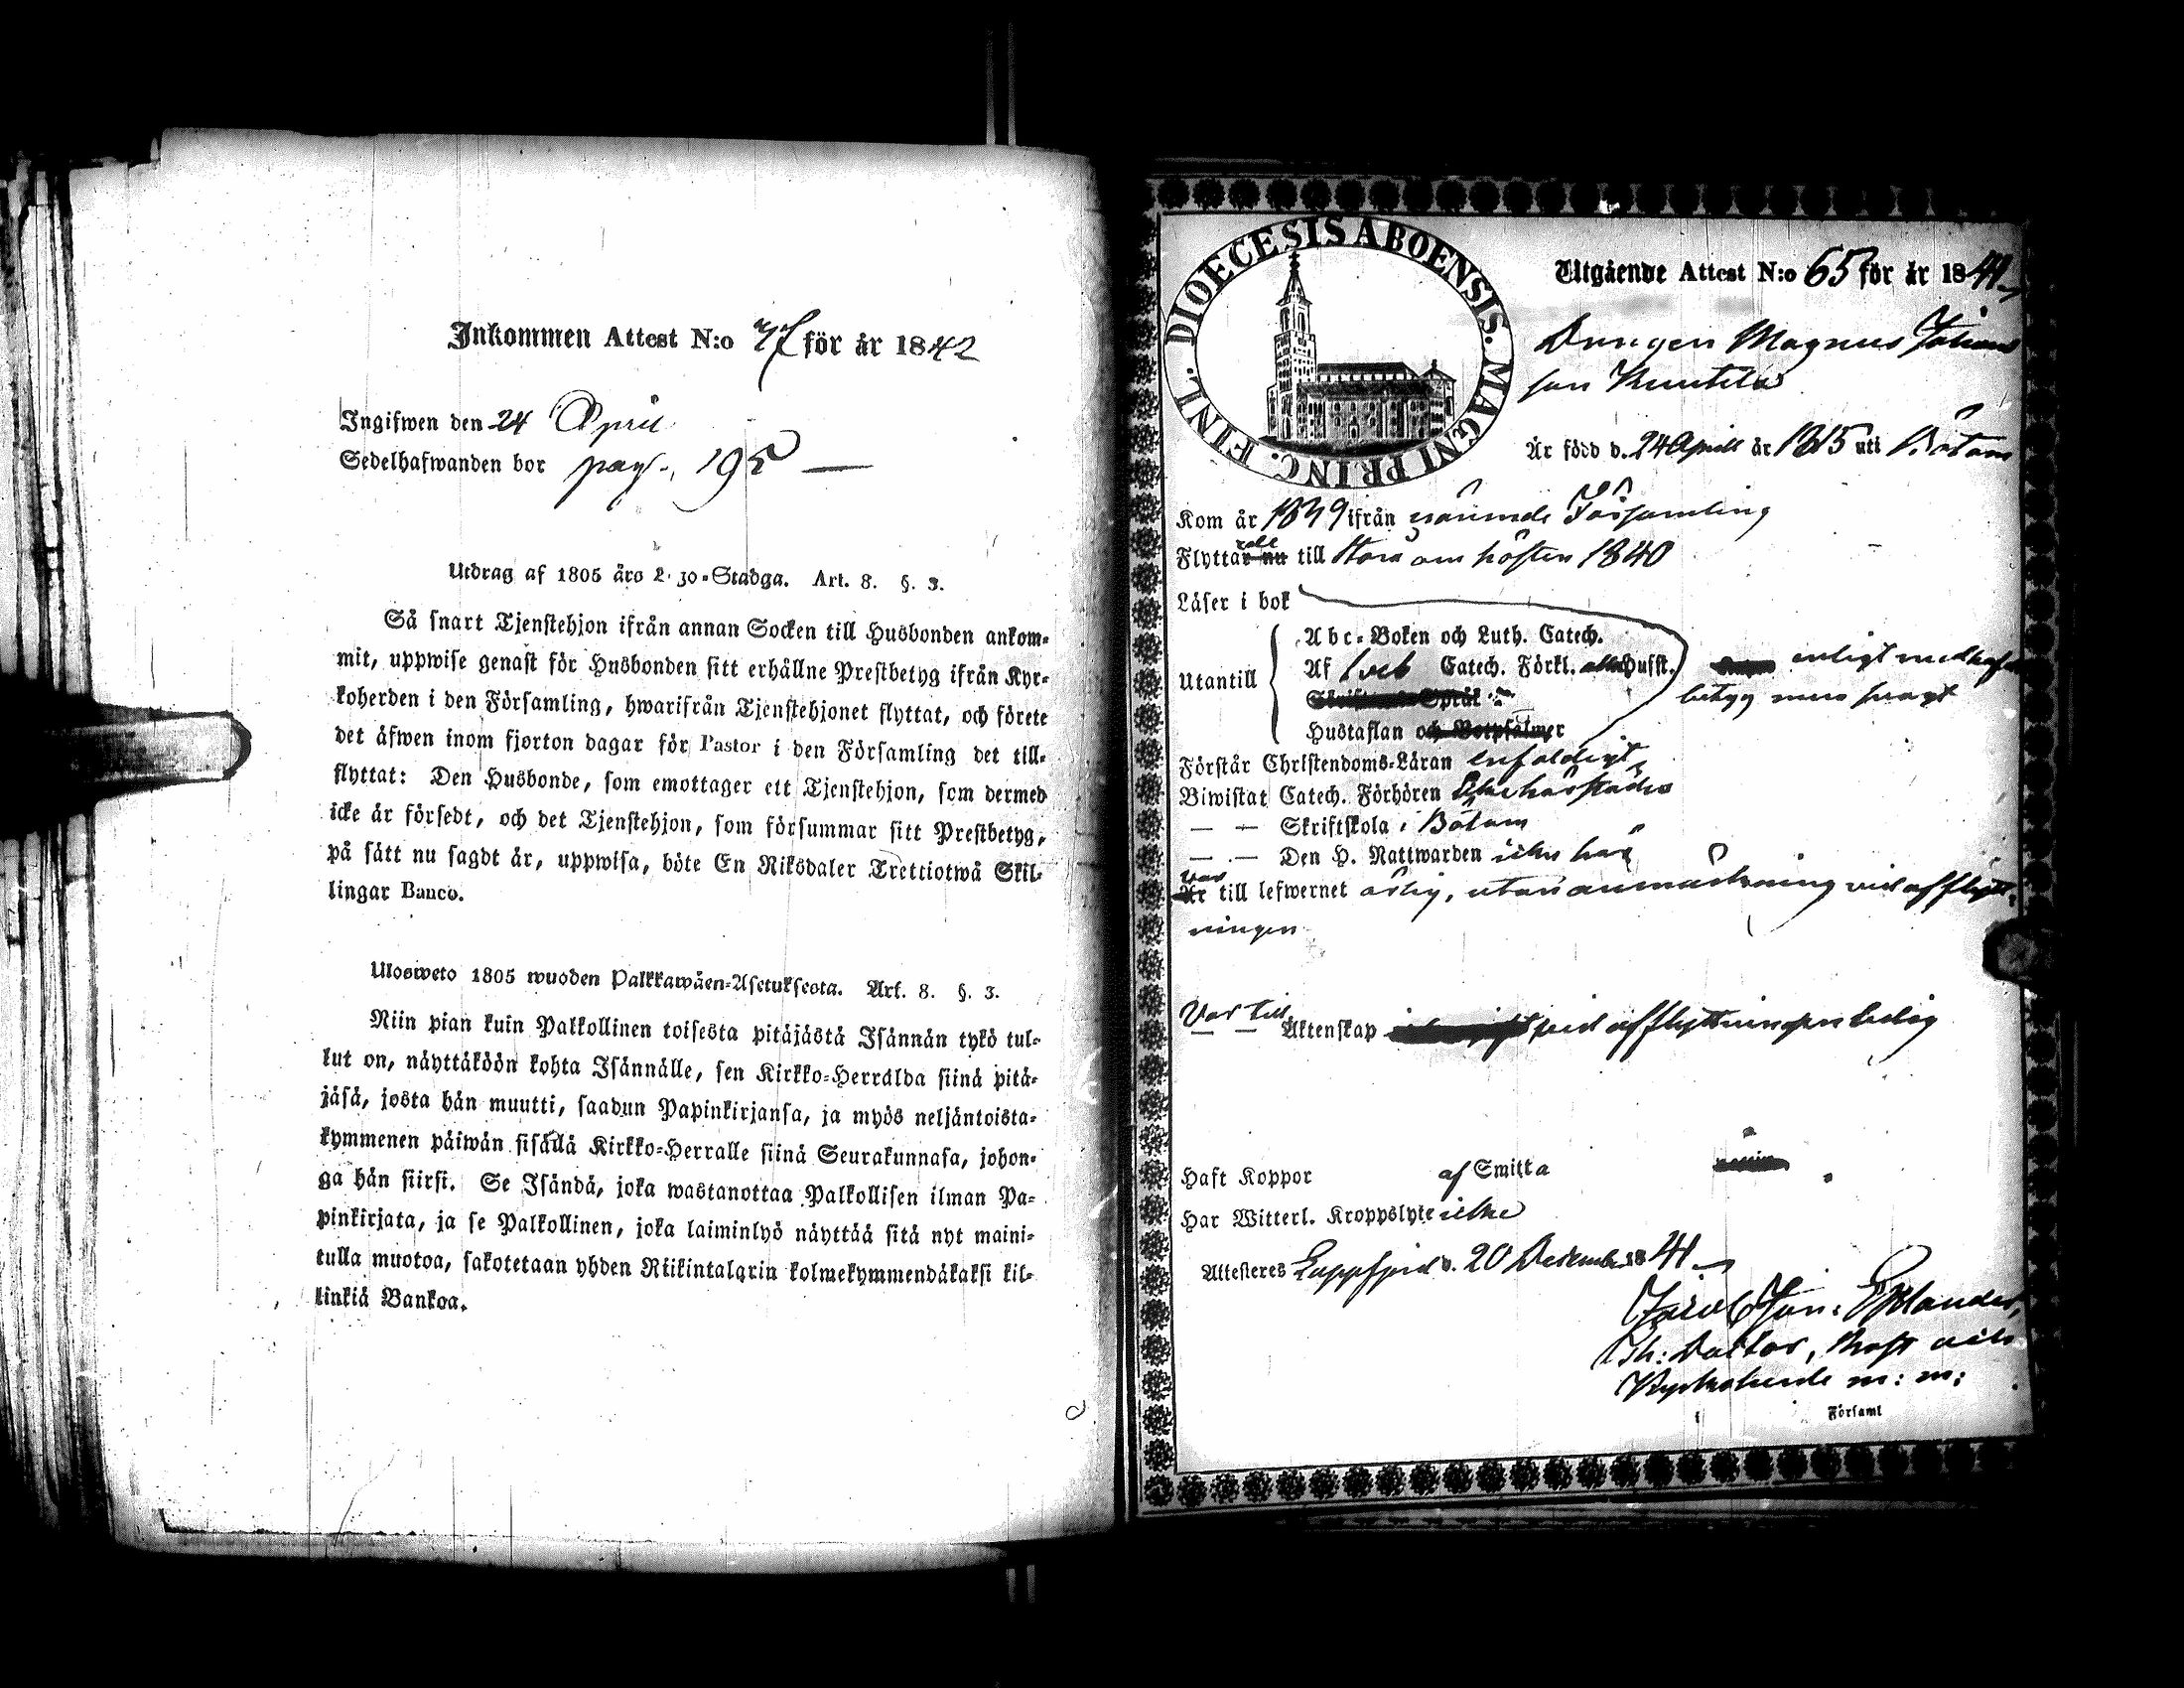 Inkommen Attest N:o 47 för år 1842
Ingifwen den 24 April
Sedelhafwanden bor pag. 195
Utdrag af 1805 års Lego-Stadga. Art. 8. §. 3.
Så snart Tjenstehjon ifrån annan Socken till Husbonden ankom-
mit, uppwise genast för Husbonden sitt erhållne Prestbetyg ifrån Kyr-
koherden i den Församling, hwarifrån Tjenstehjonet flyttat, och förete
det äfwen inom fjorton dagar för Pastor i den Församling det till-
flyttat: Den Husbonde, som emottager ett Tjenstehjon, som dermed
icke är försedt, och det Tjenstehjon, som försummar sitt Prestbetyg,
på sätt nu sagdt är, uppwisa, böte En Riksdaler Trettiotwå Skil-
lingar Banco.
Ulosweto 1805 wuoden Palkkawäen-Asetuksesta. Art. 8. §. 3.
Niin pian kuin Palkollinen toisesta pitäjästä Isännän tykö tul-
lut on, näyttäköön kohta Isännälle, sen Kirkko-Herralda siinä pitä-
jäsä, josta hän muutti, saadun Papinkirjansa, ja myös neljäntoista-
kymmenen päiwän sisällä Kirkko-Herralle siinä Seurakunnasa, johon-
ga hän siirsi. Se Isändä, joka wastanottaa Palkollisen ilman Pa-
pinkirjata, ja se Palkollinen, joka laiminlyö näyttää sitä nyt maini-
tulla muotoa, sakotetaan yhden Riikintalarin kolmekymmendäkaksi kil-
linkiä Bankoa.
FINL. DIOECESIS ABOENSIS. MAGNI PRINC.
Utgående Attest N:o 65 för år 1841
Drängen Magnus Johans
son Knutila
Är född d. 24 April år 1815 uti Bötom
Kom år 1839 ifrån nämnde Församling
Flyttade till Storå om hösten 1840
Läser i bok
Utantill
Abc-Boken och Luth. Catech.
Af Catech. Förkl. Husst. enligt medhafde
Språk betyg
Hustaflan och Botpsalmer
Förstår Christendoms-Läran enfaldigt
Biwistat Catech. Förhören härstädes
— — Skriftskola i Bötom
— — Den H. Nattwarden icke här
var
Är till lefwernet ärlig, utan anmärkning vid afflytt-
ningen
Var till
— — Äktenskap vid afflyttningen ledig
Haft Koppor af Smitta
Har Witterl. Kroppslyte icke
Attesteres Lappfjerd d. 20 December 1841
Th: Doctor, Prost och
Kyrkoherde m: m:
i Församl